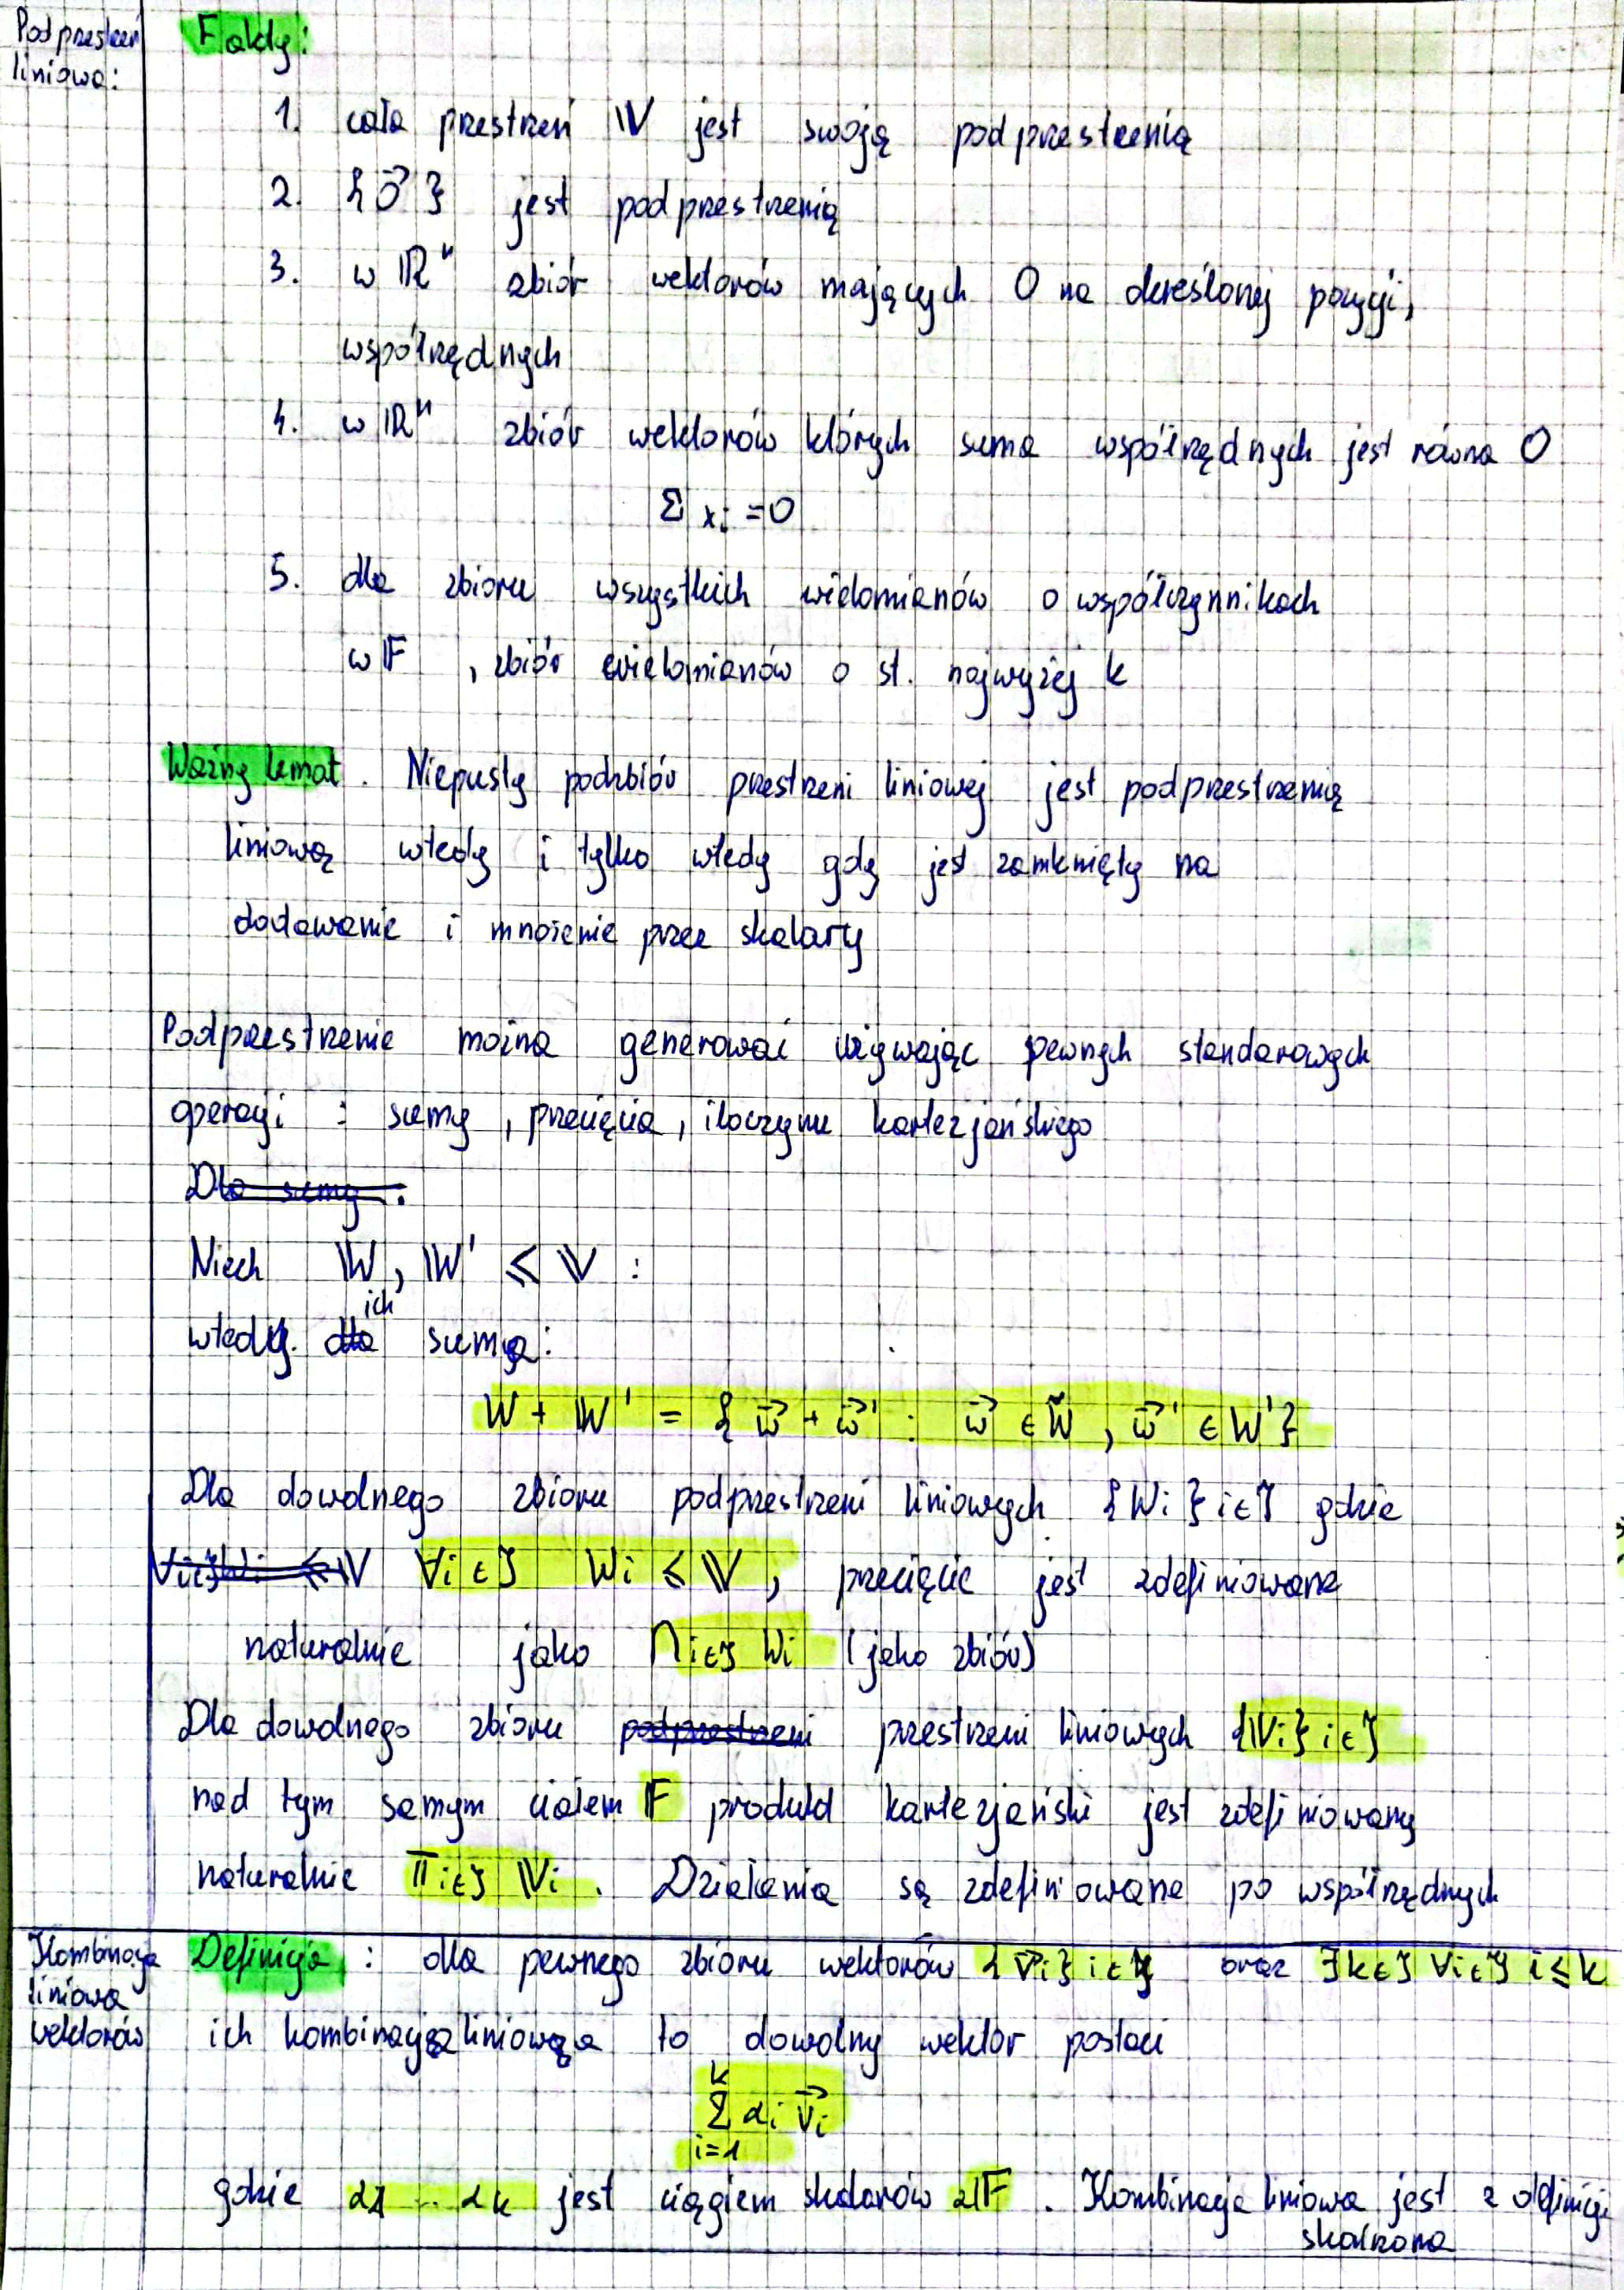 Podprzestrzeń
liniowa:
Fakty:
1. cała przestrzeń V jest swoją podprzestrzenią
2. {0⃗} jest podprzestrzenią
3. w ℝⁿ zbiór wektorów mających 0 na określonej pozycji,
współrzędnych
4. w ℝⁿ zbiór wektorów których suma współrzędnych jest równa 0
Σ xᵢ = 0
5. dla zbioru wszystkich wielomianów o współczynnikach
w 𝔽 , zbiór wielomianów o st. najwyżej k
Ważny lemat. Niepusty podzbiór przestrzeni liniowej jest podprzestrzenią
liniową wtedy i tylko wtedy gdy jest zamknięty na
dodawanie i mnożenie przez skalary
Podprzestrzenie można generować używając pewnych standarowych
operacji : sumy, przecięcia, iloczynu kartezjańskiego
Dla sumy :
Niech W, W' ⩽ V :
wtedy ich suma:
W + W' = { w⃗ + w⃗' : w⃗ ∈ W , w⃗' ∈ W' }
Dla dowolnego zbioru podprzestrzeni liniowych {Wi} i∈J gdzie
∀i∈J Wi ⩽ V ∀i∈J Wi ⩽ V, przecięcie jest zdefiniowane
naturalnie jako ∩ i∈J Wi (jako zbiór)
Dla dowolnego zbioru podprzestrzeni przestrzeni liniowych {Vi} i∈J
nad tym samym ciałem 𝔽 produkt kartezjański jest zdefiniowany
naturalnie Π i∈J Vi . Działania są zdefiniowane po współrzędnych
Kombinacja
liniowa
wektorów
Definicja : dla pewnego zbioru wektorów {v⃗i} i∈J oraz ∃k∈J ∀i∈J i⩽k
ich kombinacja liniowa to dowolny wektor postaci
k
Σ αᵢ v⃗ᵢ
i=1
gdzie α1 ... αk jest ciągiem skalarów z 𝔽 . Kombinacja liniowa jest z definicji
skończona